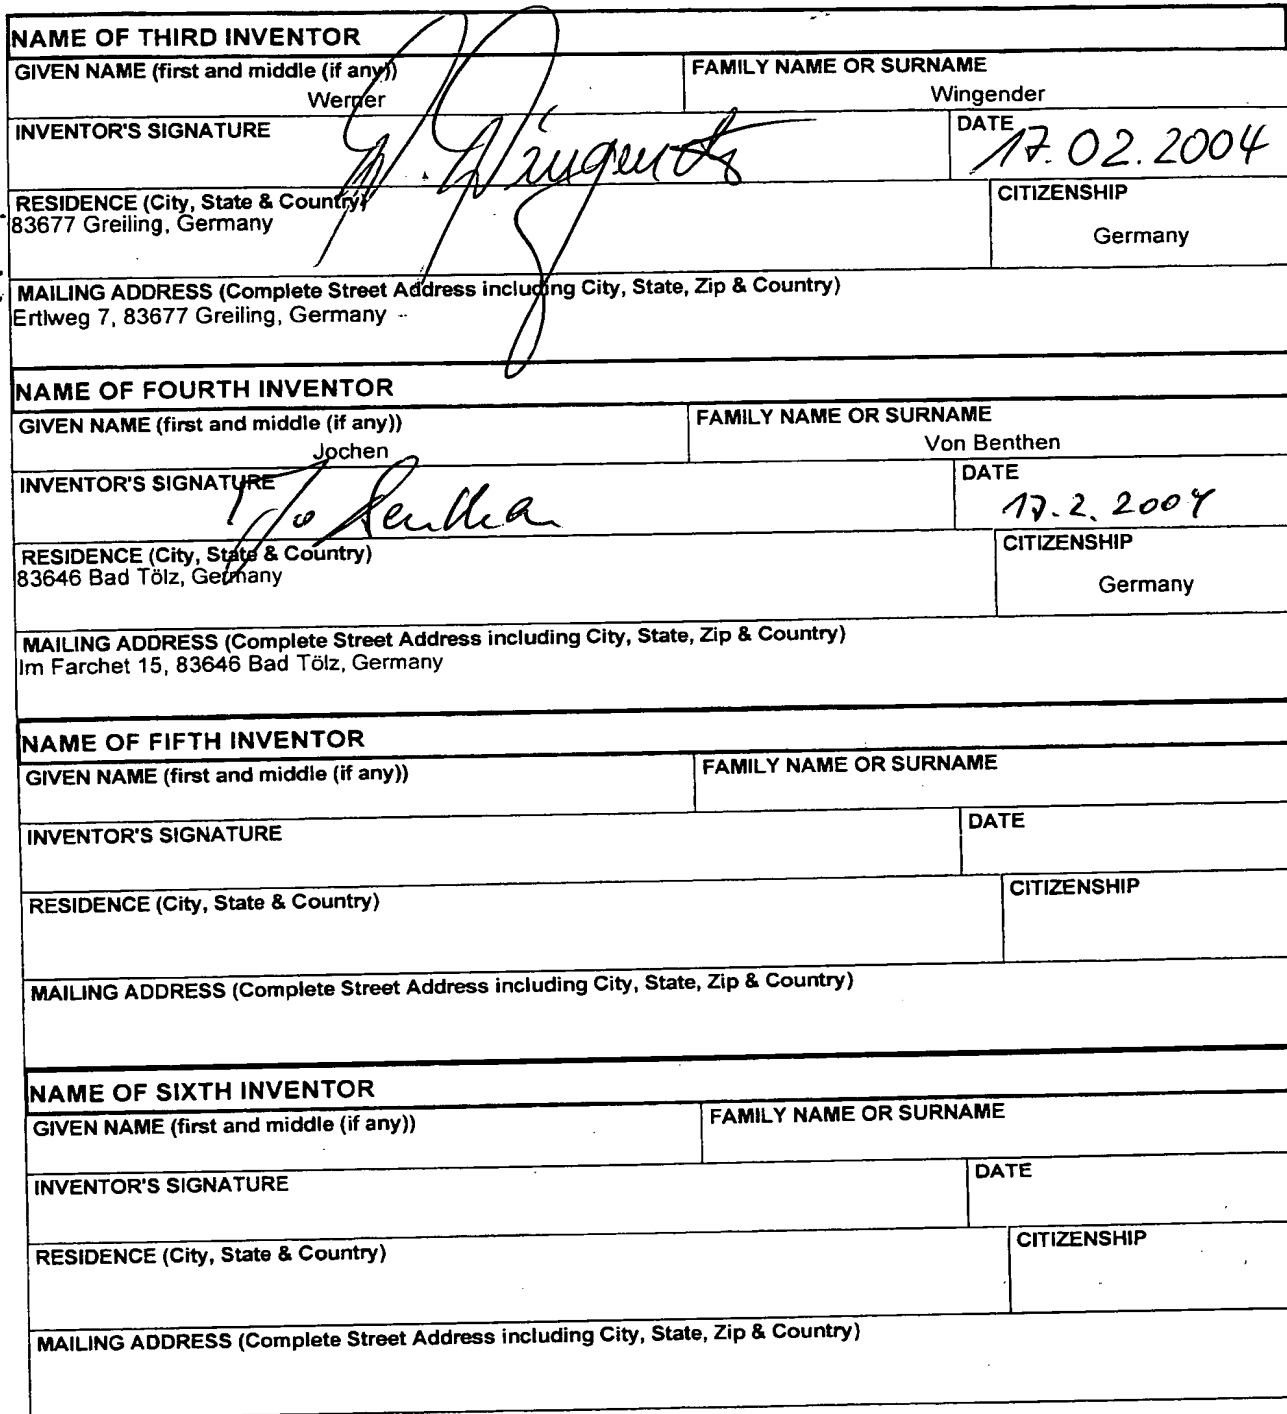 NAME OF THIRD INVENTOR
GIVEN NAME (first and middle (if any)) FAMILY NAME OR SURNAME
Werner Wingender
INVENTOR'S SIGNATURE DATE
W. Wingender 17.02.2004
RESIDENCE (City, State & Country) CITIZENSHIP
83677 Greiling, Germany
Germany
MAILING ADDRESS (Complete Street Address including City, State, Zip & Country)
Ertlweg 7, 83677 Greiling, Germany
NAME OF FOURTH INVENTOR
GIVEN NAME (first and middle (if any)) FAMILY NAME OR SURNAME
Jochen Von Benthen
INVENTOR'S SIGNATURE DATE
17.2.2004
RESIDENCE (City, State & Country) CITIZENSHIP
83646 Bad Tölz, Germany
Germany
MAILING ADDRESS (Complete Street Address including City, State, Zip & Country)
Im Farchet 15, 83646 Bad Tölz, Germany
NAME OF FIFTH INVENTOR
GIVEN NAME (first and middle (if any)) FAMILY NAME OR SURNAME
INVENTOR'S SIGNATURE DATE
RESIDENCE (City, State & Country) CITIZENSHIP
MAILING ADDRESS (Complete Street Address including City, State, Zip & Country)
NAME OF SIXTH INVENTOR
GIVEN NAME (first and middle (if any)) FAMILY NAME OR SURNAME
INVENTOR'S SIGNATURE DATE
RESIDENCE (City, State & Country) CITIZENSHIP
MAILING ADDRESS (Complete Street Address including City, State, Zip & Country)